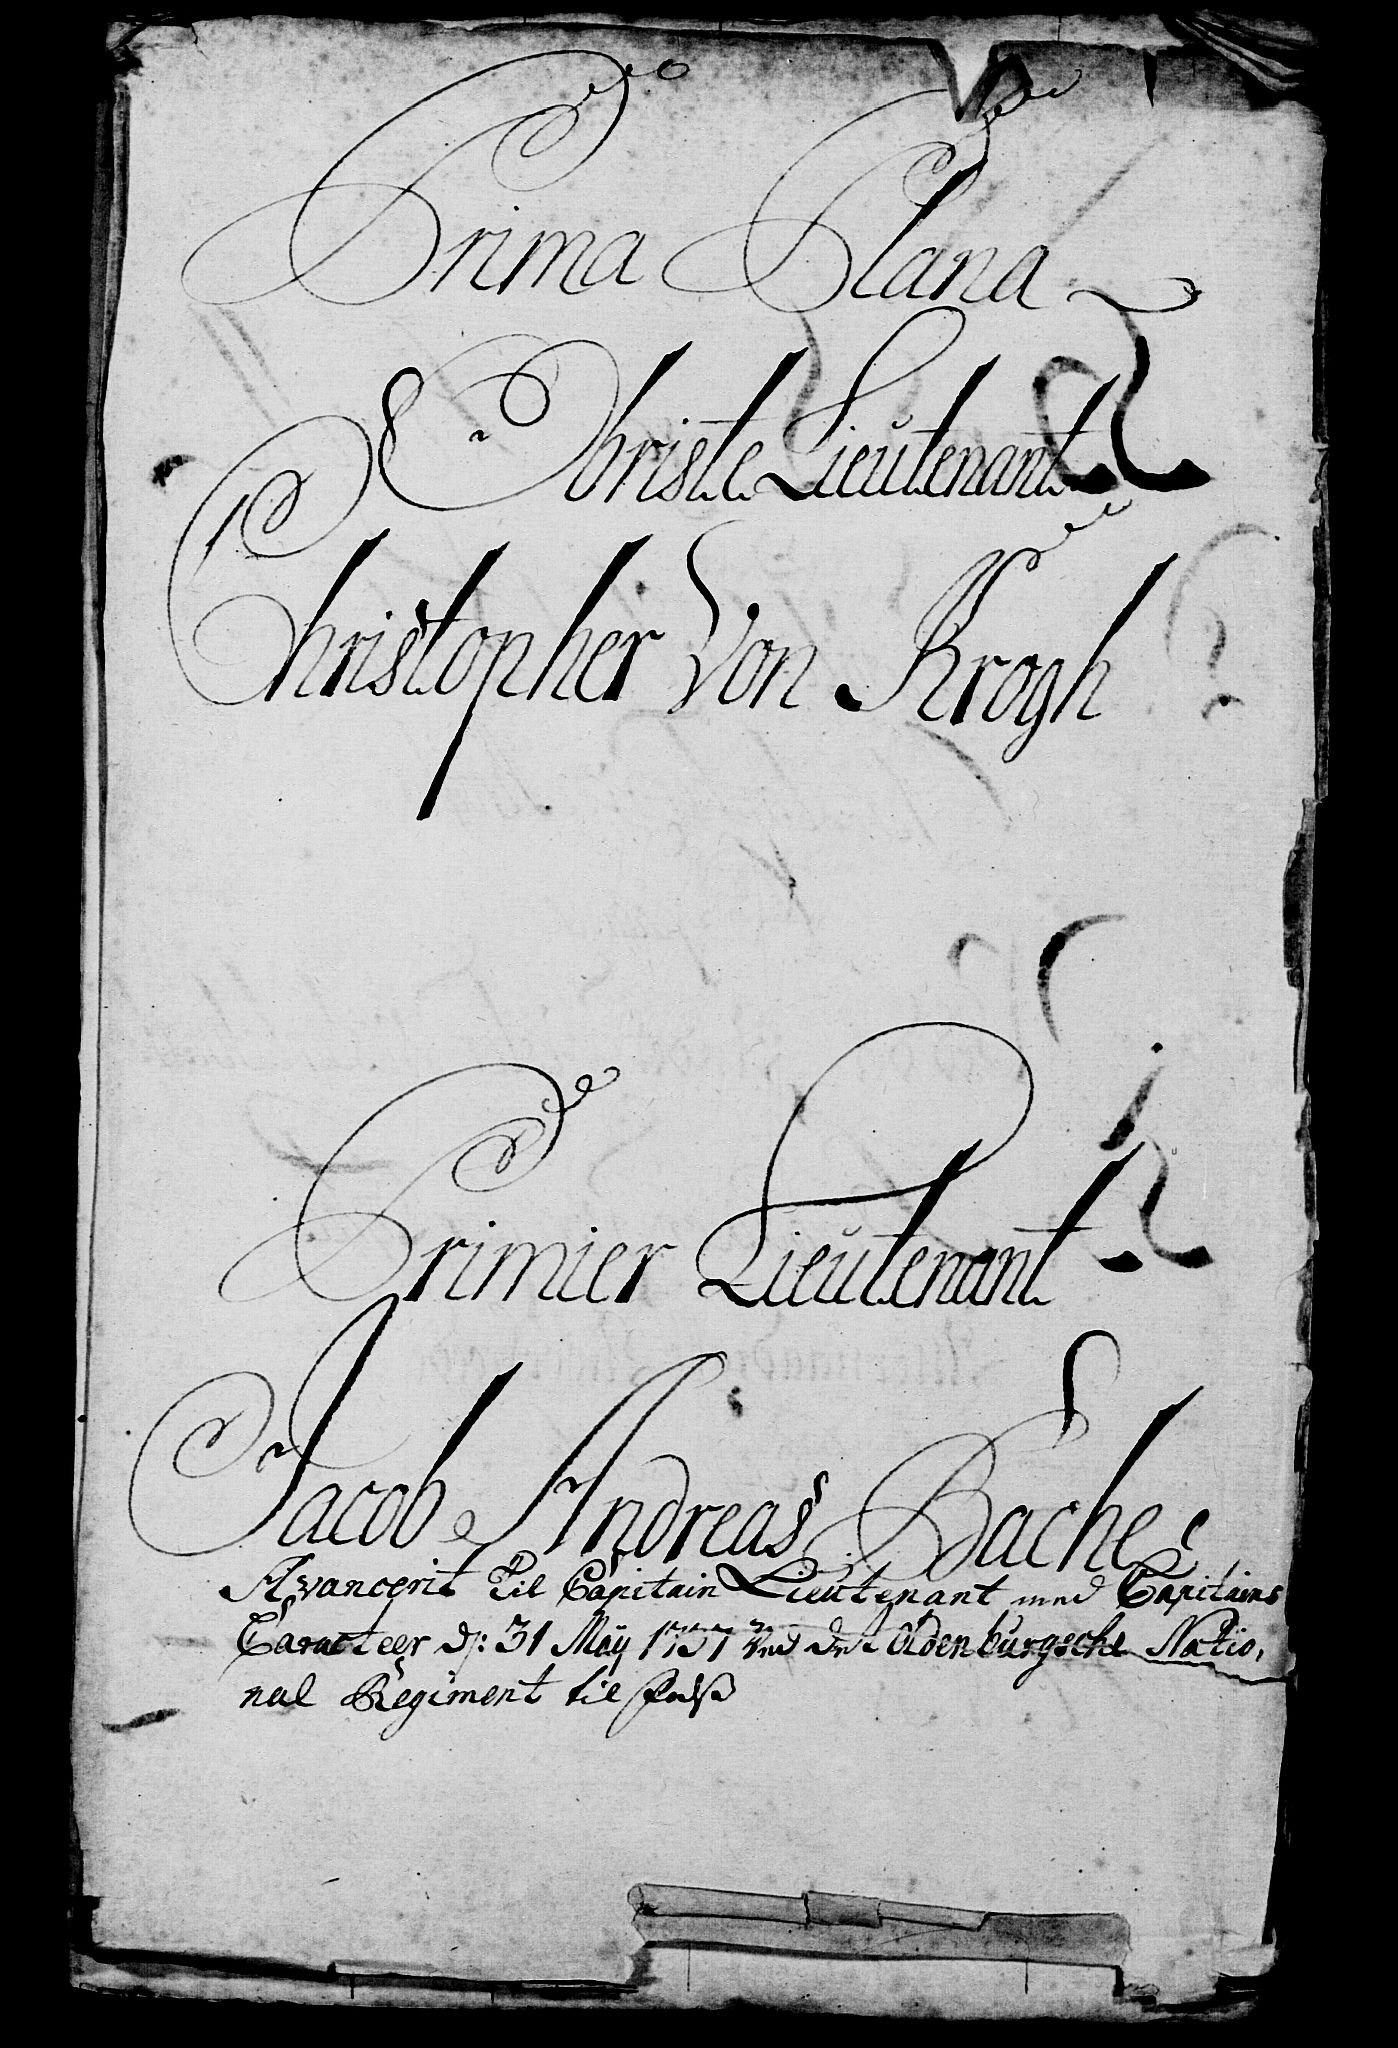 Prima Plana
Obriste Lieutenant
Christopher Von Krogh
Primier Lieutenant
Jacob Andreas Bache
Avancerit til Capitain Lieutenant med Capitains
Caracteer d: 31 May 1757 ved det Oldenburgsche Natio,
nal Regiment til fods